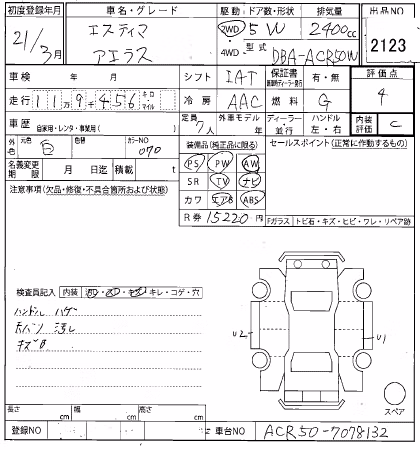 初度登録年月 車名・グレード 駆動 ドア数・形状 排気量 出品NO
21/3月 エスティマ 2WD 5 W 2400cc 2123
アエラス 4WD 型式 DBA-ACR50W
車検 年 月 シフト IAT 保証書 有・無 評価点
走行 119千456 キロ マイル 冷房 AAC 燃料 G 4
車歴 自家用・レンタ・事業用( ) 定員 7人 外車モデル 年 ディーラー・並行 ハンドル 左・右 内装評価 C
外色 元色 白 色替 カラーNO 070 装備品(純正品に限る) セールスポイント(正常に作動するもの)
名義変更期限 月 日迄 積載 t PS PW AW
注意事項(欠品・修復・不具合箇所および状態) SR TV ナビ
カワ エアB ABS
R券 15220円 Fガラス トビ石・キズ・ヒビ・ワレ・リペア跡
検査員記入 内装 キレ・コゲ・穴
ハンドル ハゲ
天バリ 汚し
キズB
U2 U1
スペア
長さ cm 幅 cm 高さ cm
登録NO 車台NO ACR50-7078132